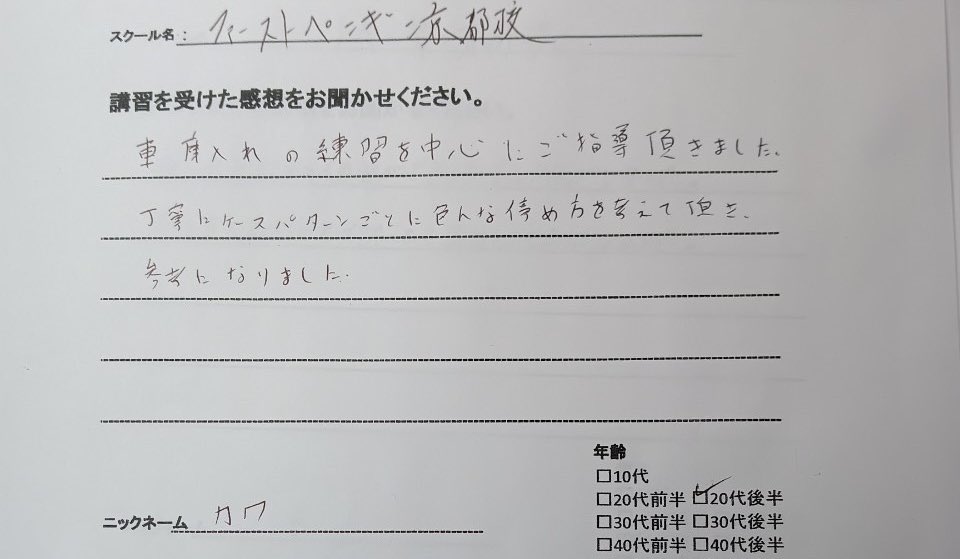 スクール名： ファーストペンギン京都校
講習を受けた感想をお聞かせください。
車庫入れの練習を中心にご指導頂きました。
丁寧にケースパターンごとに色んな停め方を考えて頂き、
参考になりました。
年齢
□10代
□20代前半 ☑20代後半
□30代前半 □30代後半
□40代前半 □40代後半
ニックネーム カワ